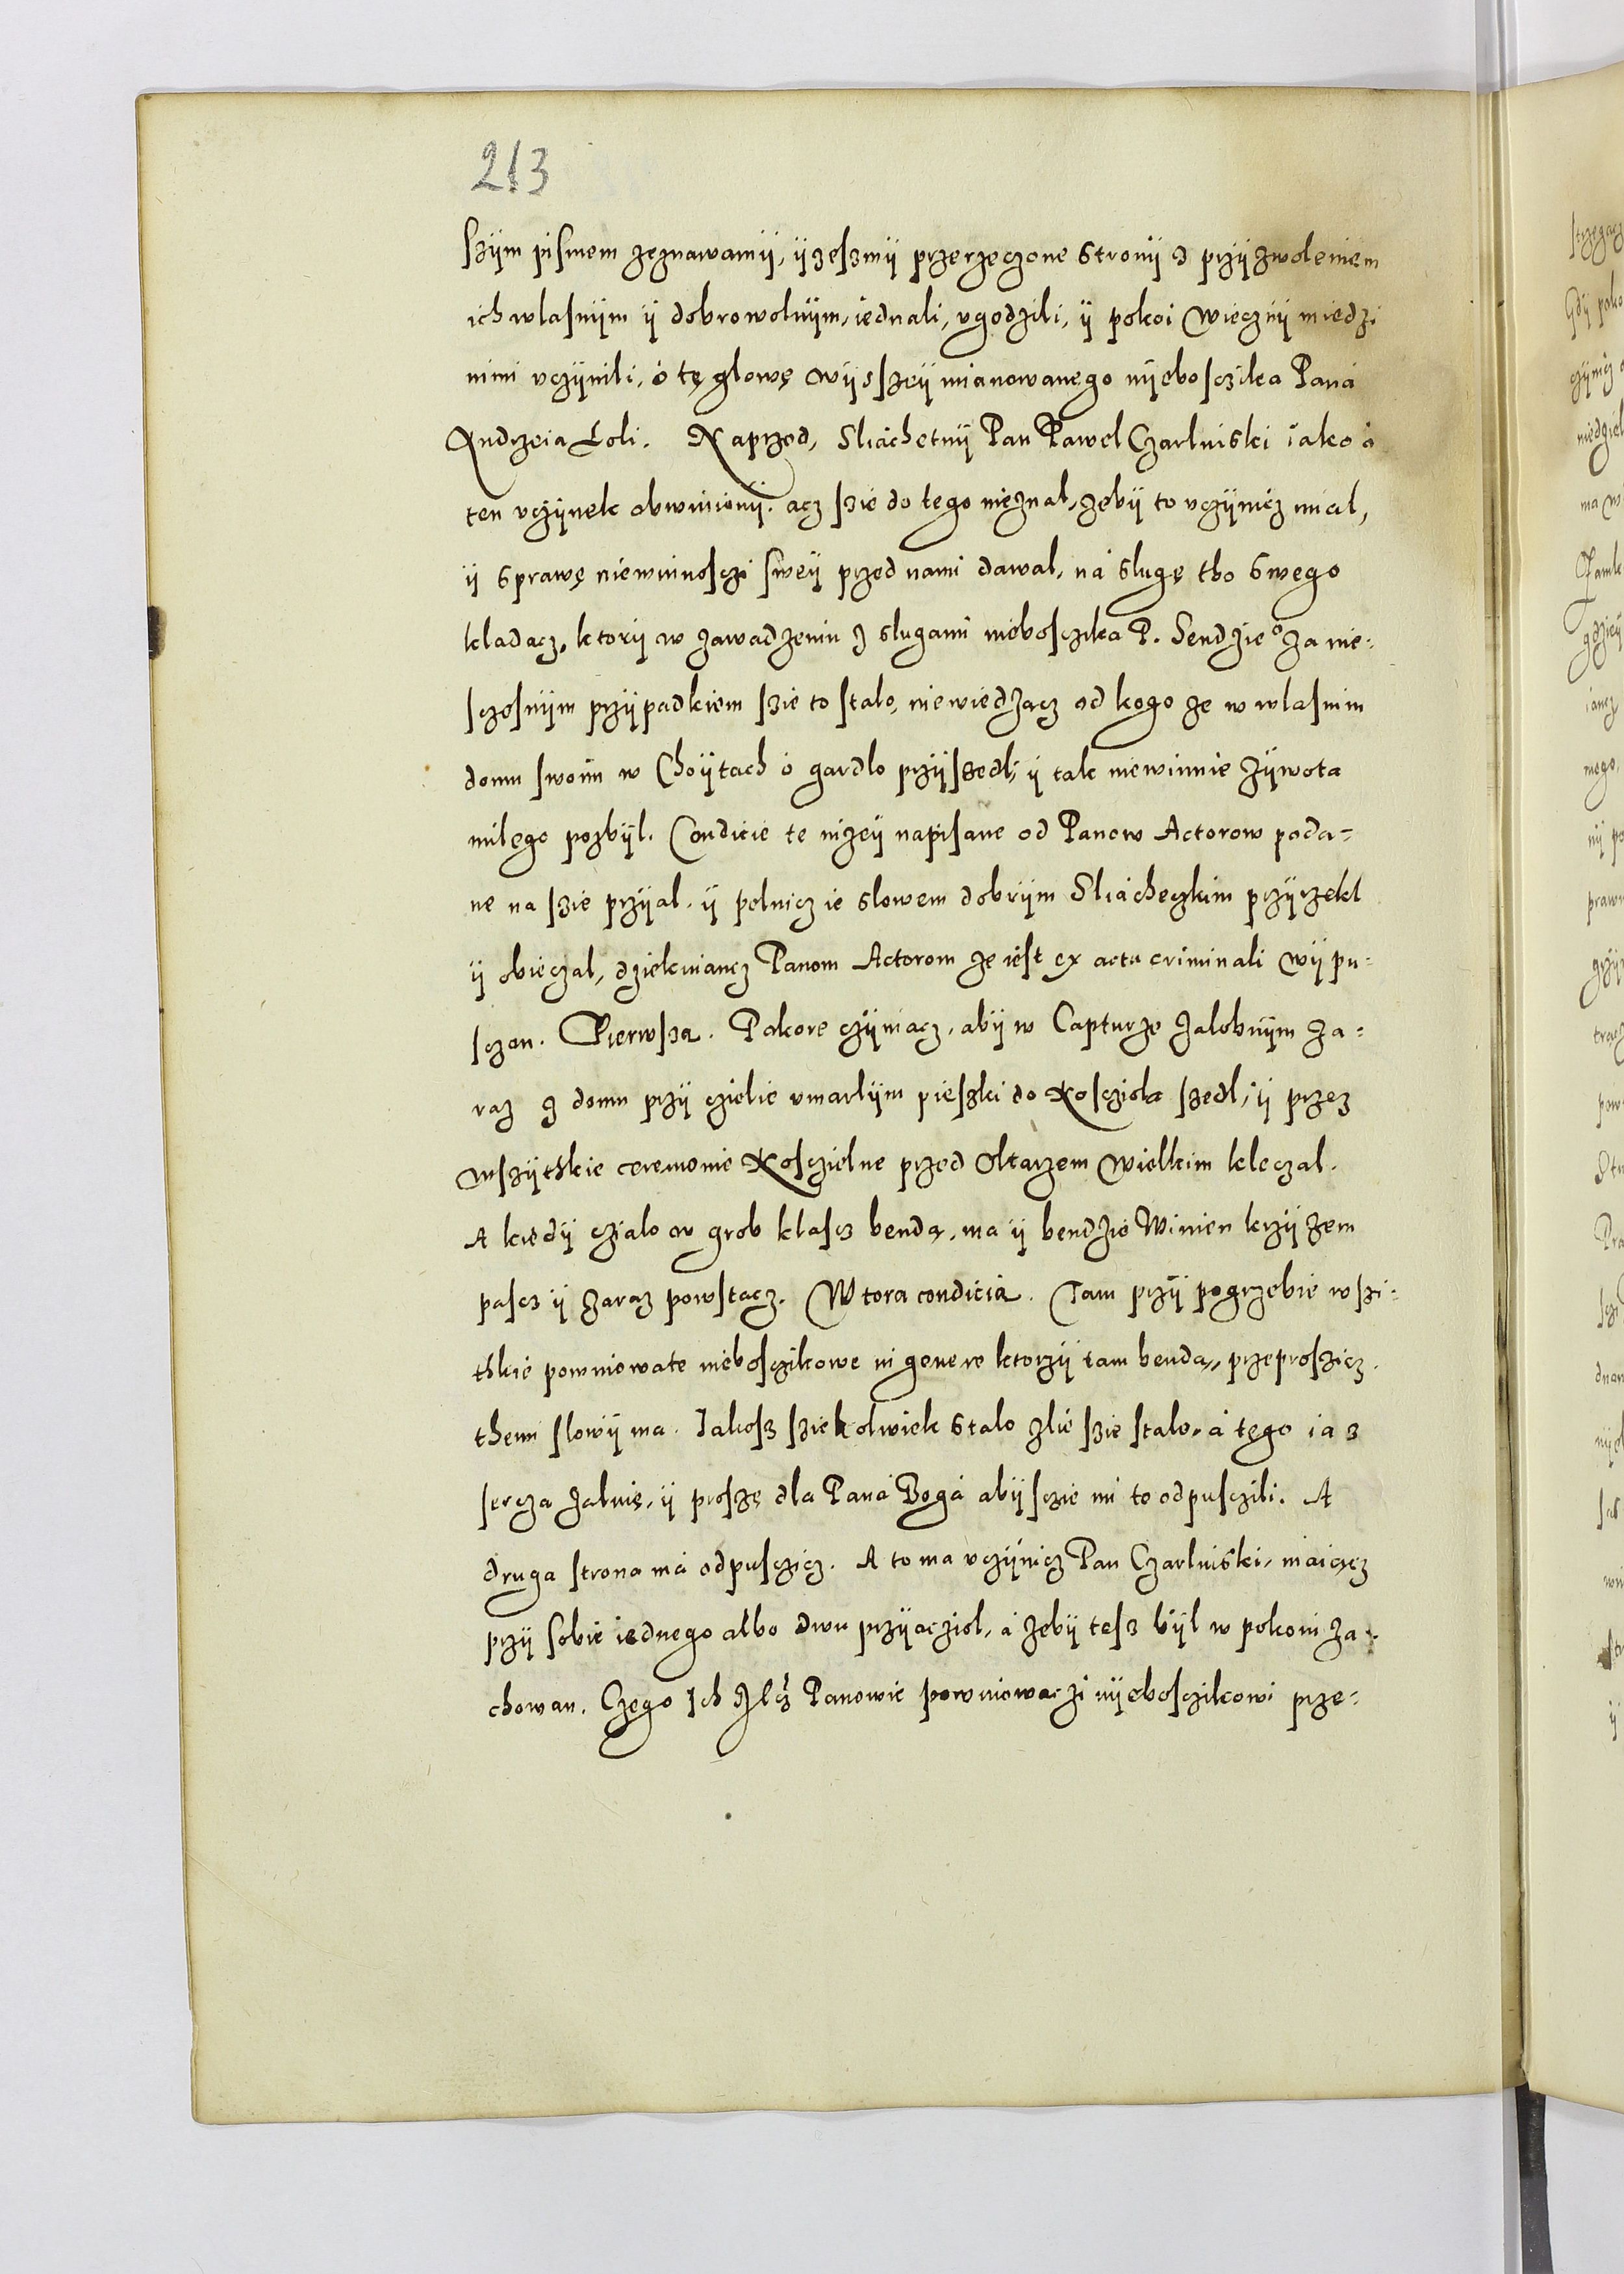 213
szÿm pismem zeznawamÿ, ÿzeszmÿ przerzeczone stronÿ z przÿzwoleniem
ich wlasnÿm ÿ dobrowolnÿm, iednali, ugodzili, ÿ pokoi wiecznÿ miedzi
nimi uczÿnili, o tę glowę wÿsszeÿ mianowanego nÿebosczika Pana
Andrzeia Loli. Naprzod, Sliachetnÿ Pan Pawel Czarlniski iako o
ten uczÿnek obwinionÿ. acz szie do tego nieznal, zebÿ to uczÿnicz mial,
ÿ sprawę niewinnosczi sweÿ przed nami dawal, na slugę tho swego
kladacz, ktorÿ w zawadzeniu z slugami niebosczika P. Sendzie° za nie-
sczosnÿm przÿpadkiem szie to stalo, niewiedzacz od kogo ze w wlasnim
domu swoim w Choÿtach o gardlo przÿszedl, ÿ tak niewinnie zÿwota
milego pozbÿl. Condicie te nizeÿ napisane od Panow Actorow poda-
ne na szie przÿal. ÿ pelnicz ie slowem dobrÿm Sliacheczkim przÿrzekl
ÿ obieczal, dziekuiancz Panom Actorom ze iest ex actu criminali wÿpu-
sczon. Pierwsza. Pokore czÿniacz, abÿ w Capturze zalobnÿm za-
raz z domu przÿ czielie umarlÿm pieszki do Kosciola szedl, ÿ przez
wszÿthkie ceremonie Kosczielne przed Oltarzem Wielkim kleczal.
A kiedÿ czialo w grob klascz bendą, ma ÿ bendzie Winien krzÿzem
pascz ÿ zaraz powstacz. Wtora condicia. Tam przÿ pogrzebie wszi-
thkie powniowate nieboszczikowe in genere ktorzÿ tam benda, przeproszicz
themi slowÿ ma. Jakosz sziekolwiek stalo zlie szie stalo, a tego ia z
sercza zaluię, ÿ proszę dla Pana Boga abÿsczie mi to odpusczili. A
druga strona ma odpusczicz. A to ma uczÿnicz Pan Czarlniski, maiącz
przÿ sobie iednego albo dwu przÿacziol, a zebÿ tesz bÿl w pokoiu za-
chowan. Czego Ich Panowie powniowaczi nÿebosczikowi prze-